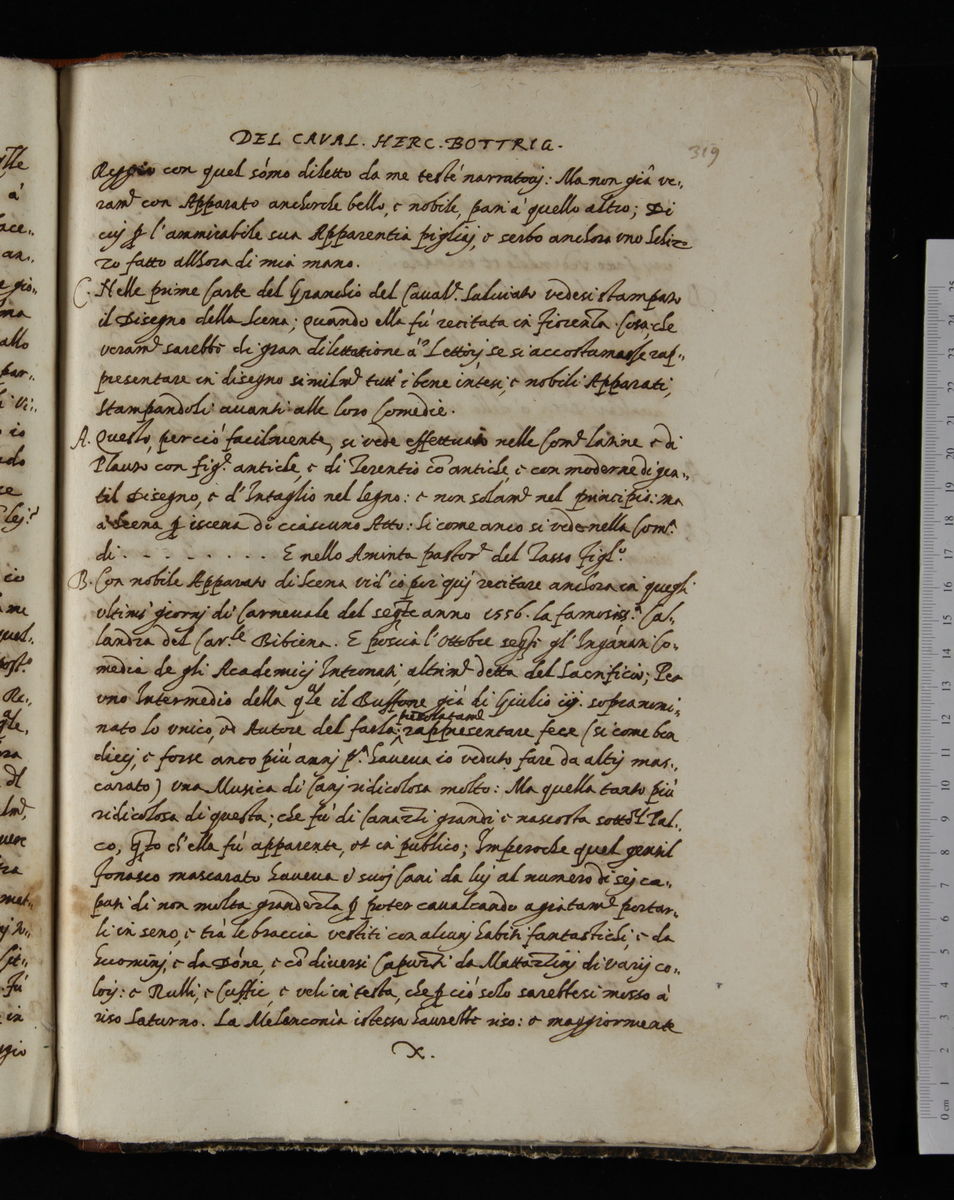 DEL CAVAL. HERC. BOTTRIG.
319
Reggio con quel sómo diletto da me testé narratovj: Ma non già ve-
ramᵗᵉ con Apparato anchorche bello, e nobile, pari à quello altro; Di
cuj ꝑ l'ammirabile sua Apparentia pigliaj, e serbo anchora uno schiz-
zo fatto allhora di mia mano.
C. Nelle prime Carte del Granchio del Cavalʳ. Salviato vedesi stampato
il Disegno della Scena; quando ella fù recitata in Fiorenza. Cosa che
veramᵗᵉ sarebbe di gran dilettatione à Lettorj se si accostumasse rap-
presentare in disegno similmᵗᵉ tutti i bene intesi, e nobili Apparati,
stampandoli avanti alle loro Comedie.
A. Questo, perciò facilmente, si vede effettuato nelle Comᵉ latine e di
Plauto con figᵉ antiche, e di Terentio cō antiche, e con moderne di gen-
til Disegno, e d'Intaglio nel legno: e non solamᵗᵉ nel principio: ma
à Scena ꝑ iscena di ciascuno Atto: Si come anco si vede nella Comᵃ
di - - - - - - - - E nello Aminta pastorˡᵉ del Tasso Figlᵒ.
B. Con nobile Apparato di Scena vid'io poi quj recitare anchora in quegli
ultimi giornj di Carnevale del segᵗᵉ anno 1556. la famosisˢᵃ Ca-
landra del Carˡᵉ Bibiena. E poscia l'Ottobre segᵗᵉ gl'Ingannati Co-
media de gli Academicj Intronati, altrimᵗⁱ detta del Sacrificio; Per
uno Intermedio della qᵃˡᵉ il Buffone già di Giulio iij. sopranomi-
nato lo unico, et Autore del farla, rappresentare fece (si come ben
diecj, e forse anco più annj pʳᵃ haveva io veduto fare da altrj mas-
carato) una Musica di Canj ridicolosa molto: Ma quella tanto più
ridicolosa di questa; che fù di Canazzi grandi e nascosta sotto'l Pal-
co, qᵗᵒ ch'ella fù apparente, et in publico; Imperoche quel gentil
Fonasco mascarato haveva i suoj Cani da luj al numero di sej ca-
pati di non molta grandezza ꝑ poter cavalcando agiatamᵗᵉ portar-
li in seno, e trà le braccia vestiti con alcunj habiti fantastichi, e da
huominj, e da Dóne, e cō diversi Capuzzi da Mattazzinj di varij co-
lorj: e Rulli, e Cuffie, e veli in testa, che ꝑ ciò solo sarebbesi mosso à
riso Saturno. La Melanconia istessa haurebbe riso: e maggiormente
X.